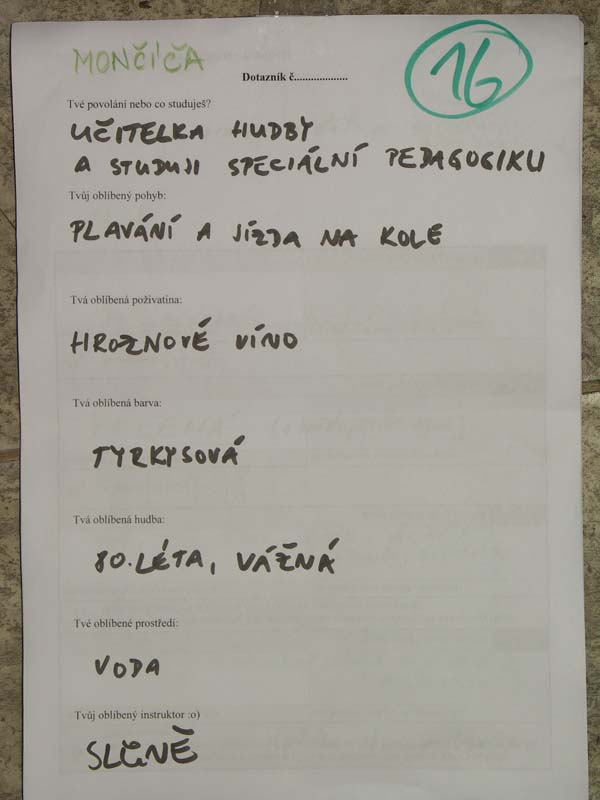 MONČÍČA
16
Dotazník č...................
Tvé povolání nebo co studuješ?
UČITELKA HUDBY
A STUDUJI SPECIÁLNÍ PEDAGOGIKU
Tvůj oblíbený pohyb:
PLAVÁNÍ A JÍZDA NA KOLE
Tvá oblíbená poživatina:
HROZNOVÉ VÍNO
Tvá oblíbená barva:
TYRKYSOVÁ
Tvá oblíbená hudba:
80. LÉTA, VÁŽNÁ
Tvé oblíbené prostředí:
VODA
Tvůj oblíbený instruktor :o)
SLŮNĚ